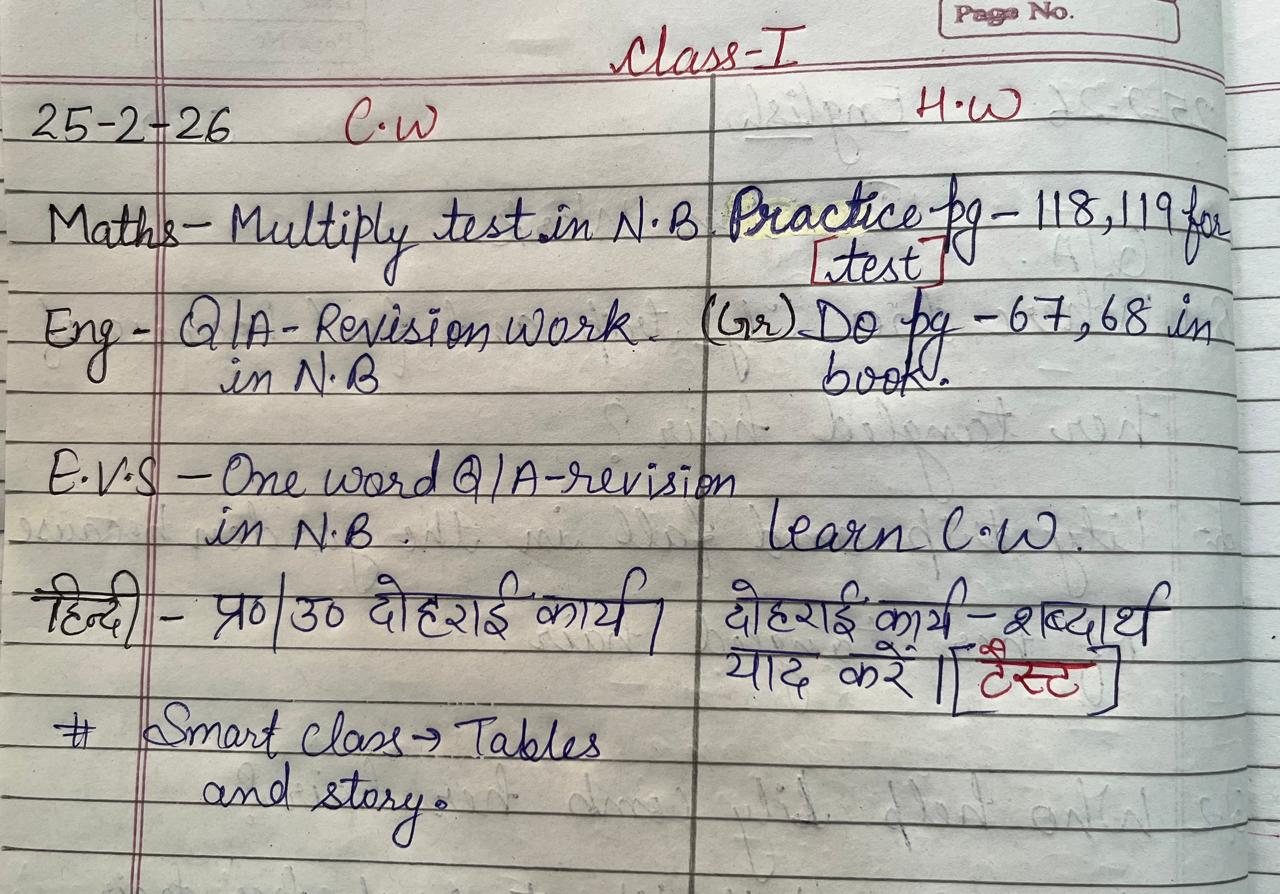 Page No.
Class-I
25-2-26 C.W H.W
Maths- Multiply test in N.B. Practice pg - 118,119 for
[test]
Eng - Q/A - Revision Work. (Gr) Do pg - 67, 68 in
in N.B book.
E.V.S - One word Q/A-revision
in N.B. learn C.W.
हिन्दी - प्र०/उ० दोहराई कार्य। दोहराई कार्य - शब्दार्थ
याद करें।[टैस्ट]
# Smart class → Tables
and story.